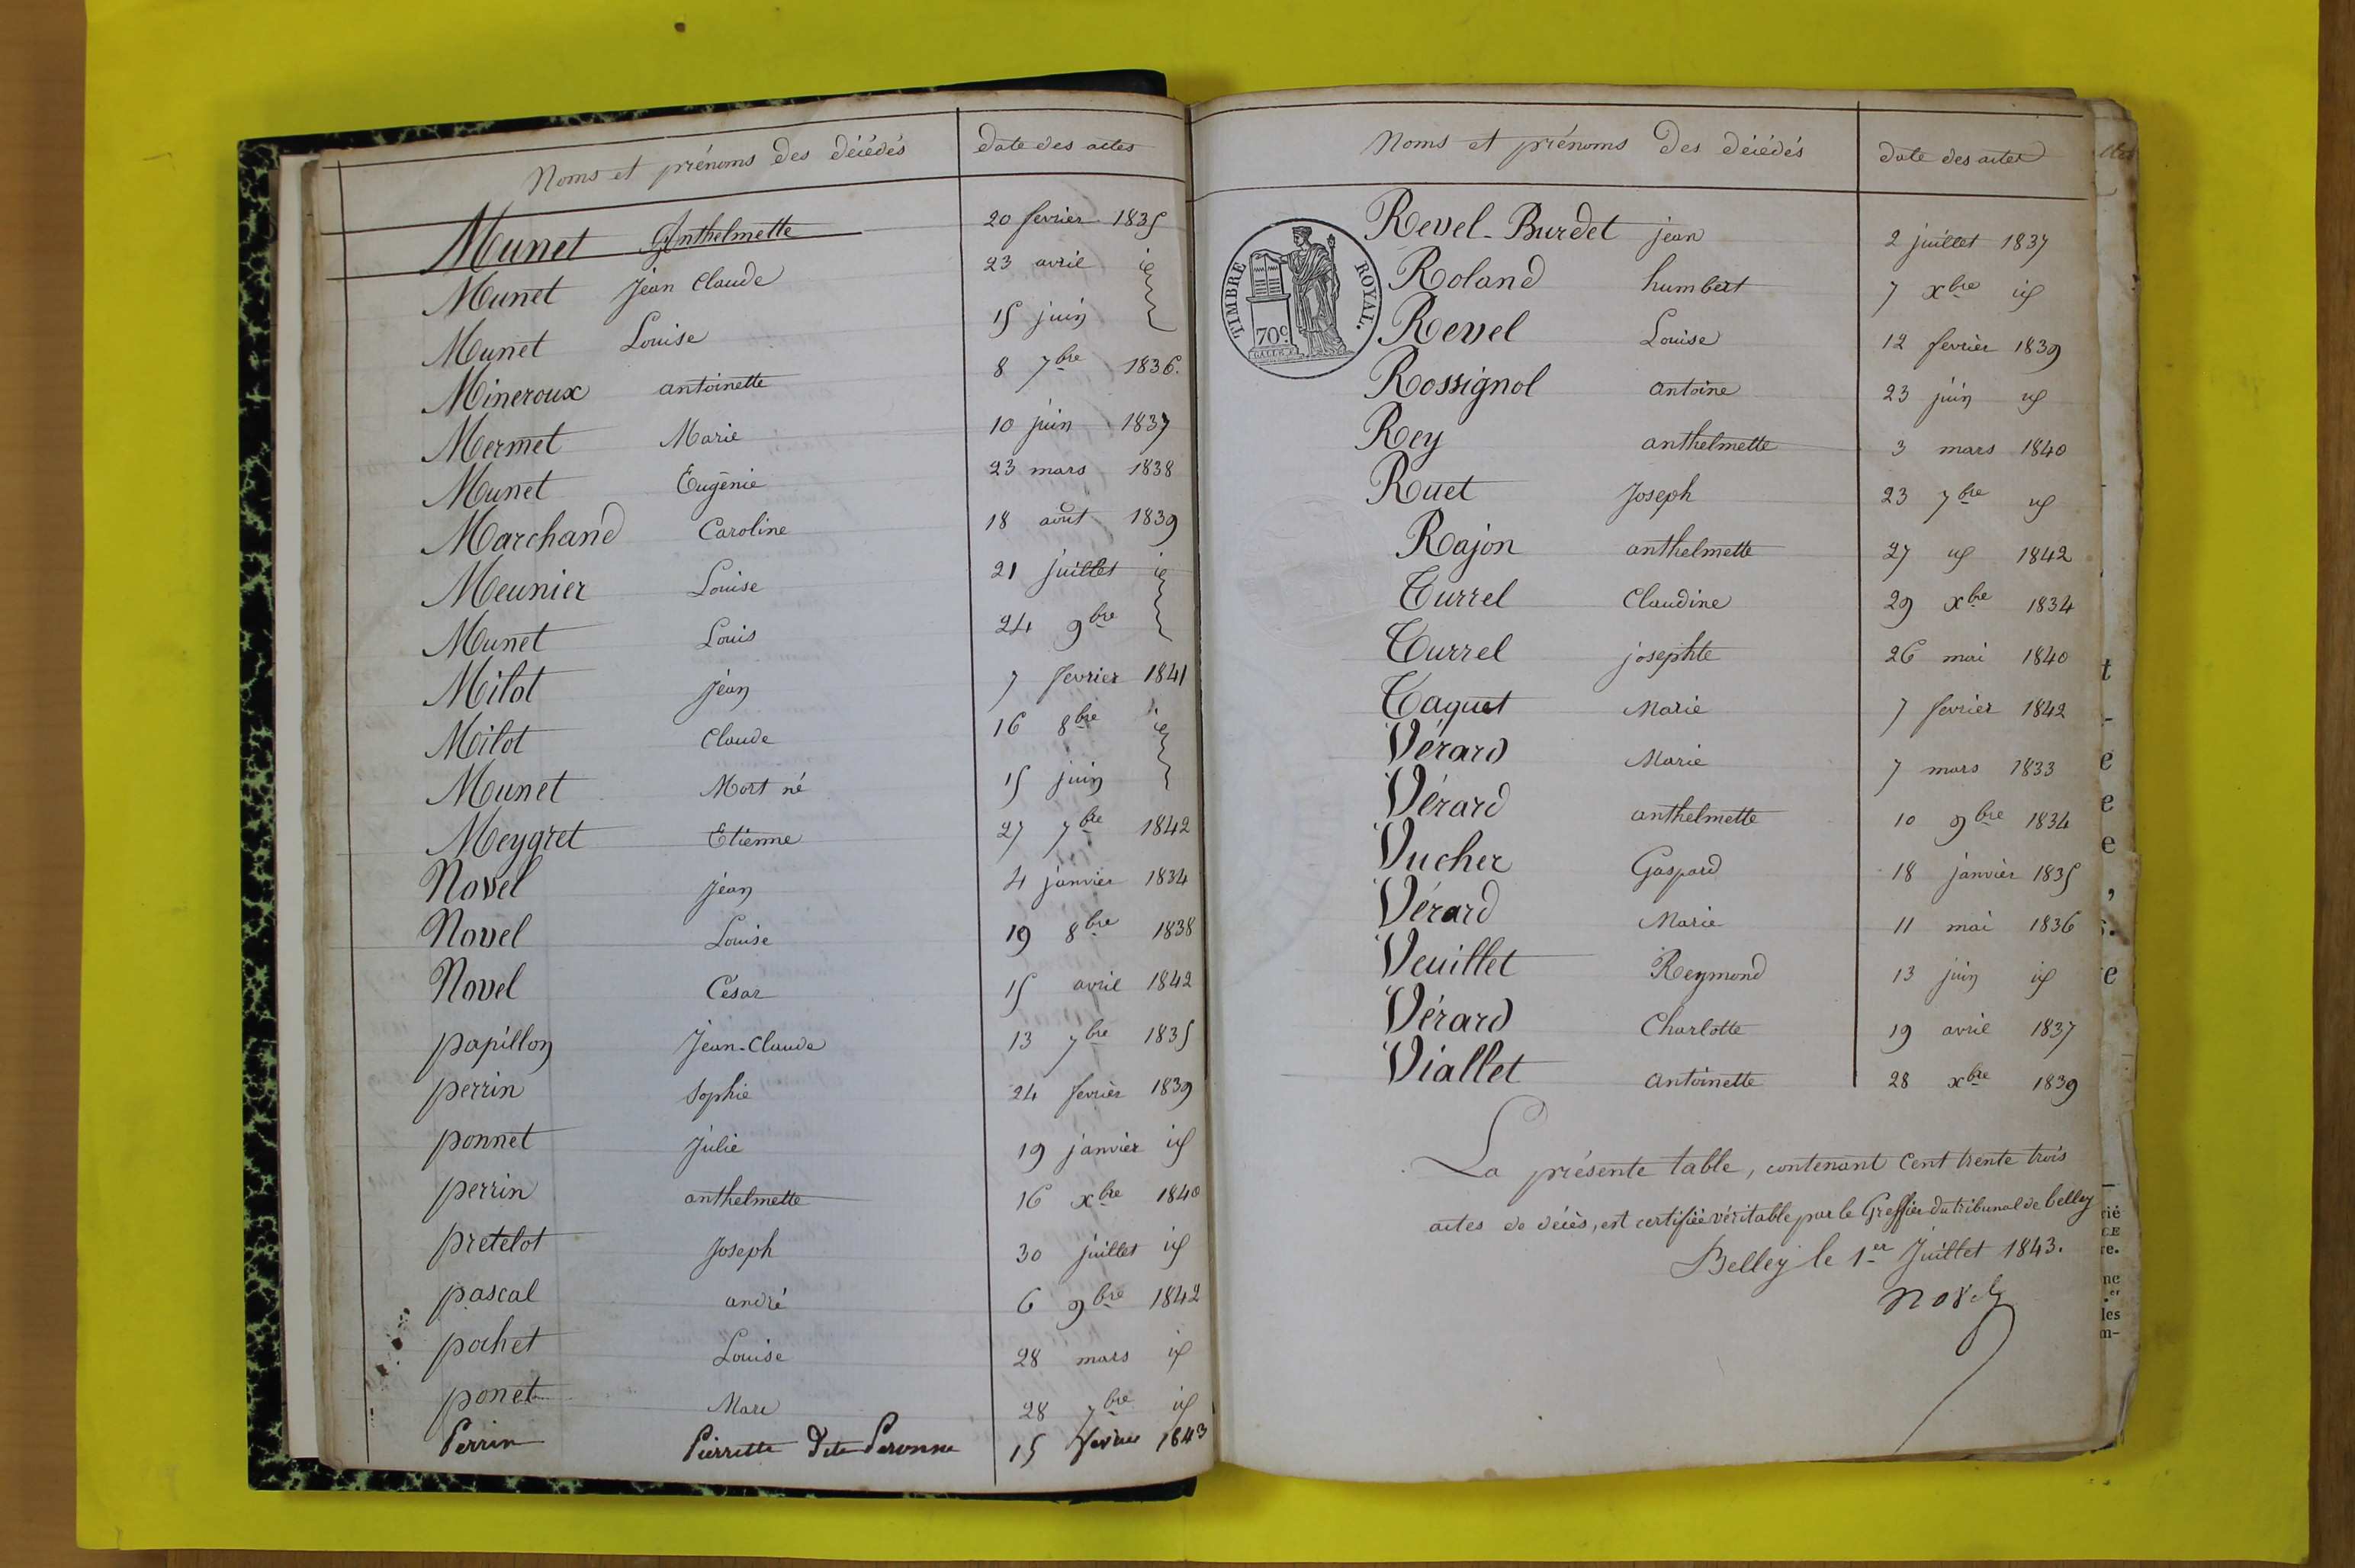 Noms et prénoms des décédés date des actes
Munet Anthelmette 20 fevrier 1835
Munet Jean Claude 23 avril id
Munet Louise 15 juin
Mineroux antoinette 8 7bre 1836.
Mermet Marie 10 juin 1837
Munet Eugénie 23 mars 1838
Marchand Caroline 18 août 1839
Meunier Louise 21 juillet id
Munet Louis 24 9bre
Milot jean 7 fevrier 1841
Milot Claude 16 8bre id
Munet Mort né 15 juin
Meygret Etienne 27 7bre 1842
Novel jean 4 janvier 1834
Novel Louise 19 8bre 1838
Novel César 15 avril 1842
papillon Jean-Claude 13 7bre 1835
perrin Sophie 24 fevrier 1839
ponnet Julie 19 janvier id
perrin anthelmette 16 xbre 1840
pretelot Joseph 30 juillet id
pascal andré 6 9bre 1842
pochet Louise 28 mars id
ponet Marc 28 7bre id
Perrin Pierrette dite Peronne 15 fevrier 1843
Noms et prénoms des décédés date des actes
TIMBRE ROYAL.
70c
Revel-Burdet jean 2 juillet 1837
Roland humbert 7 xbre id
Revel Louise 12 fevrier 1839
Rossignol antoine 23 juin id
Rey anthelmette 3 mars 1840
Ruet Joseph 23 7bre id
Rajon anthelmette 27 id 1842
Turrel Claudine 29 xbre 1834
Turrel josephte 26 mai 1840
Taquet Marie 7 fevrier 1842
Vérard Marie 7 mars 1833
Vérard anthelmette 10 9bre 1834
Vucher Gaspard 18 janvier 1835
Vérard Marie 11 mai 1836
Veuillet Reymond 13 juin id
Vérard Charlotte 19 avril 1837
Viallet antoinette 28 xbre 1839
La présente table, contenant cent trente trois
actes de décès, est certifiée véritable par le Greffier du tribunal de belley
Belley le 1er Juillet 1843.